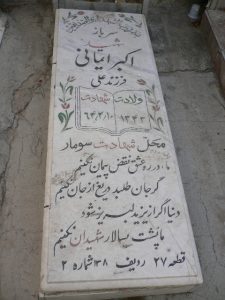 سرباز
شهید
اکبر ایتانی
فرزند علی
ولادت شهادت
۱۳۴۳ ۶۴/۲/۱۰
محل شهادت سومار
ما در ره عشق نقض پیمان نکنیم
گر جان طلبد دریغ از جان نکنیم
دنیا اگر از یزید لبریز شود
ما پشت به سالار شهیدان نکنیم
قطعه ۲۷ ردیف ۱۳۸ شماره ۲